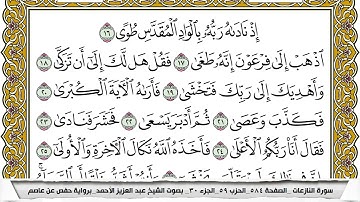 إِذْ نَادَىٰهُ رَبُّهُۥ بِٱلْوَادِ ٱلْمُقَدَّسِ طُوًى ١٦
ٱذْهَبْ إِلَىٰ فِرْعَوْنَ إِنَّهُۥ طَغَىٰ ١٧ فَقُلْ هَل لَّكَ إِلَىٰٓ أَن تَزَكَّىٰ ١٨
وَأَهْدِيَكَ إِلَىٰ رَبِّكَ فَتَخْشَىٰ ١٩ فَأَرَىٰهُ ٱلْـَٔايَةَ ٱلْكُبْرَىٰ ٢٠
فَكَذَّبَ وَعَصَىٰ ٢١ ثُمَّ أَدْبَرَ يَسْعَىٰ ٢٢ فَحَشَرَ فَنَادَىٰ ٢٣
فَقَالَ أَنَا۠ رَبُّكُمُ ٱلْأَعْلَىٰ ٢٤ فَأَخَذَهُ ٱللَّهُ نَكَالَ ٱلْـَٔاخِرَةِ وَٱلْأُولَىٰٓ ٢٥
سورة النازعات _ الصفحة ٥٨٤_ الحزب ٥٩_ الجزء ٣٠_ بصوت الشيخ عبد العزيز الأحمد_ برواية حفص عن عاصم